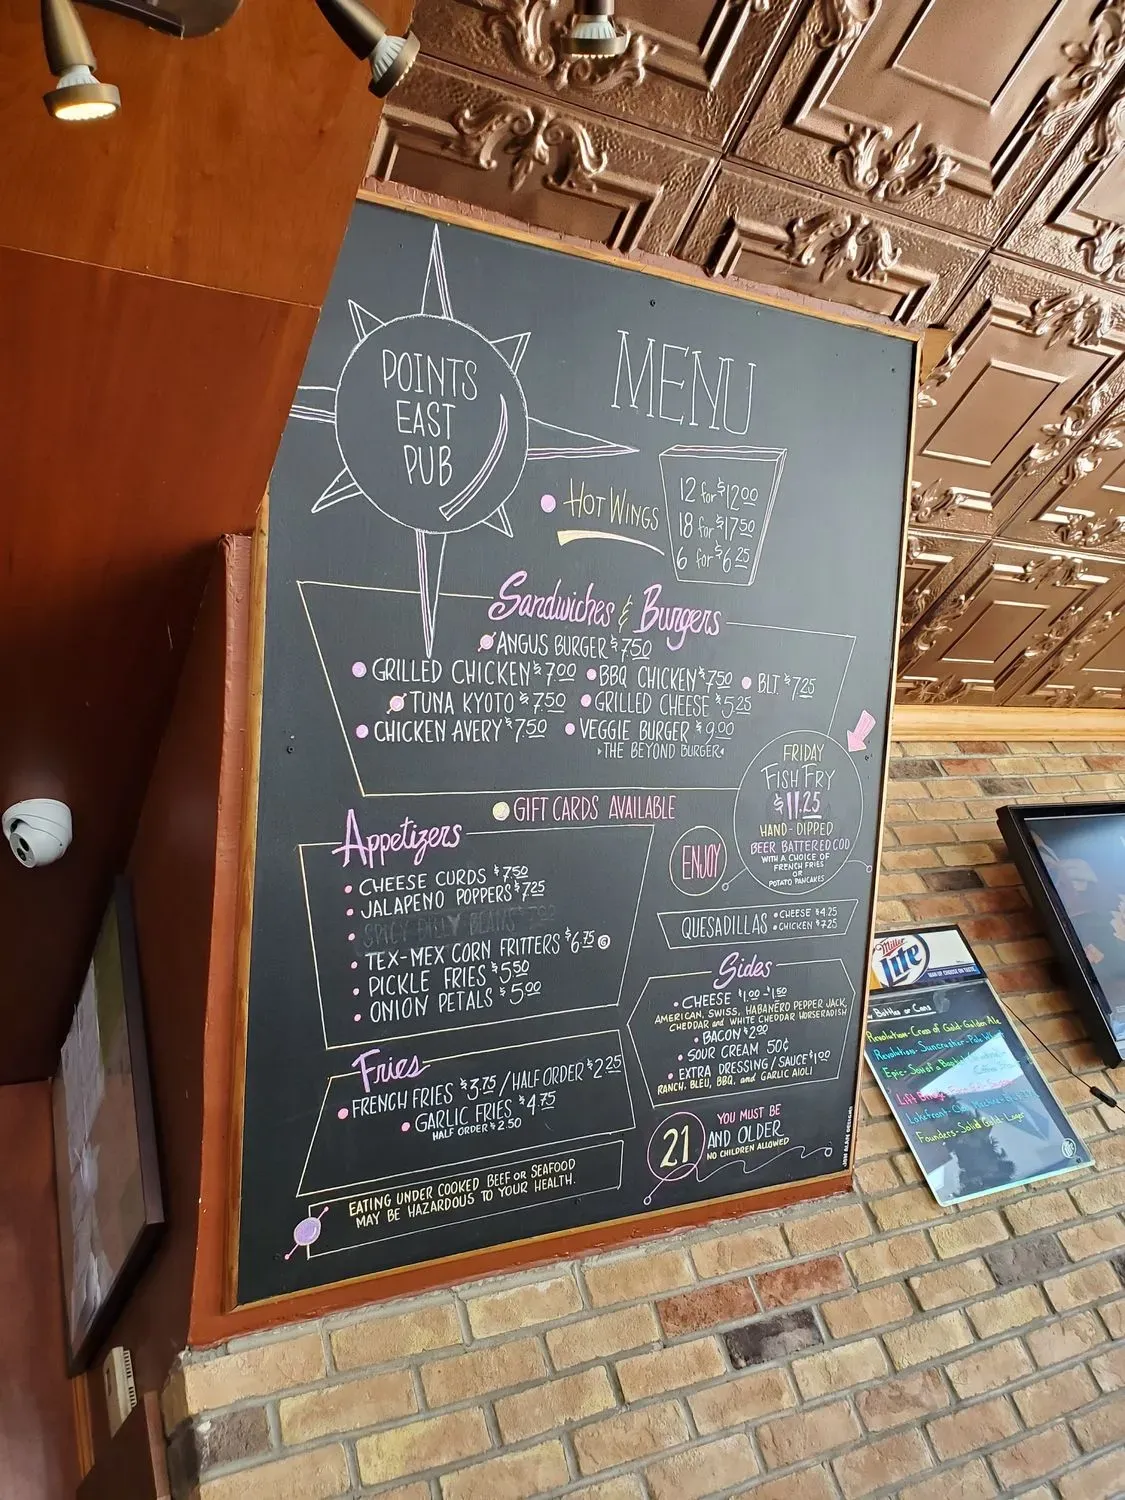 POINTS
EAST
PUB
MENU
HOT WINGS
12 for $12.00
18 for $17.50
6 for $6.25
Sandwiches & Burgers
ANGUS BURGER $7.50
GRILLED CHICKEN $7.00 BBQ CHICKEN $7.50 BLT. $7.25
TUNA KYOTO $7.50 GRILLED CHEESE $5.25
CHICKEN AVERY $7.50 VEGGIE BURGER $9.00
THE BEYOND BURGER
FRIDAY
FISH FRY
$11.25
HAND-DIPPED
BEER BATTERED COD
WITH A CHOICE OF
FRENCH FRIES
OR
POTATO PANCAKES
GIFT CARDS AVAILABLE
ENJOY
Appetizers
CHEESE CURDS $7.50
JALAPENO POPPERS $7.25
SPICY DILLY BEANS 7.00
TEX-MEX CORN FRITTERS $6.75
PICKLE FRIES $5.50
ONION PETALS $5.00
QUESADILLAS • CHEESE $4.25
• CHICKEN $7.25
Sides
• CHEESE $1.00-$1.50
AMERICAN, SWISS, HABANERO PEPPER JACK,
CHEDDAR and WHITE CHEDDAR HORSERADISH
• BACON $2.00
• SOUR CREAM 50¢
• EXTRA DRESSING/SAUCE $1.00
RANCH, BLEU, BBQ, and GARLIC AIOLI
Fries
FRENCH FRIES $3.75/HALF ORDER $2.25
GARLIC FRIES $4.75
HALF ORDER $2.50
21
YOU MUST BE
AND OLDER
NO CHILDREN ALLOWED
EATING UNDER COOKED BEEF OR SEAFOOD
MAY BE HAZARDOUS TO YOUR HEALTH.
JEN ALAN DESIGNS
Miller
Lite
Bottles or Cans
Revolution-Cross of Gold-Golden Ale
Revolution-Suncrusher-Pale
Epic-Son of a Baptist
Lift Bridge
Lakefront
Founders-Solid Gold-Lager
Lite